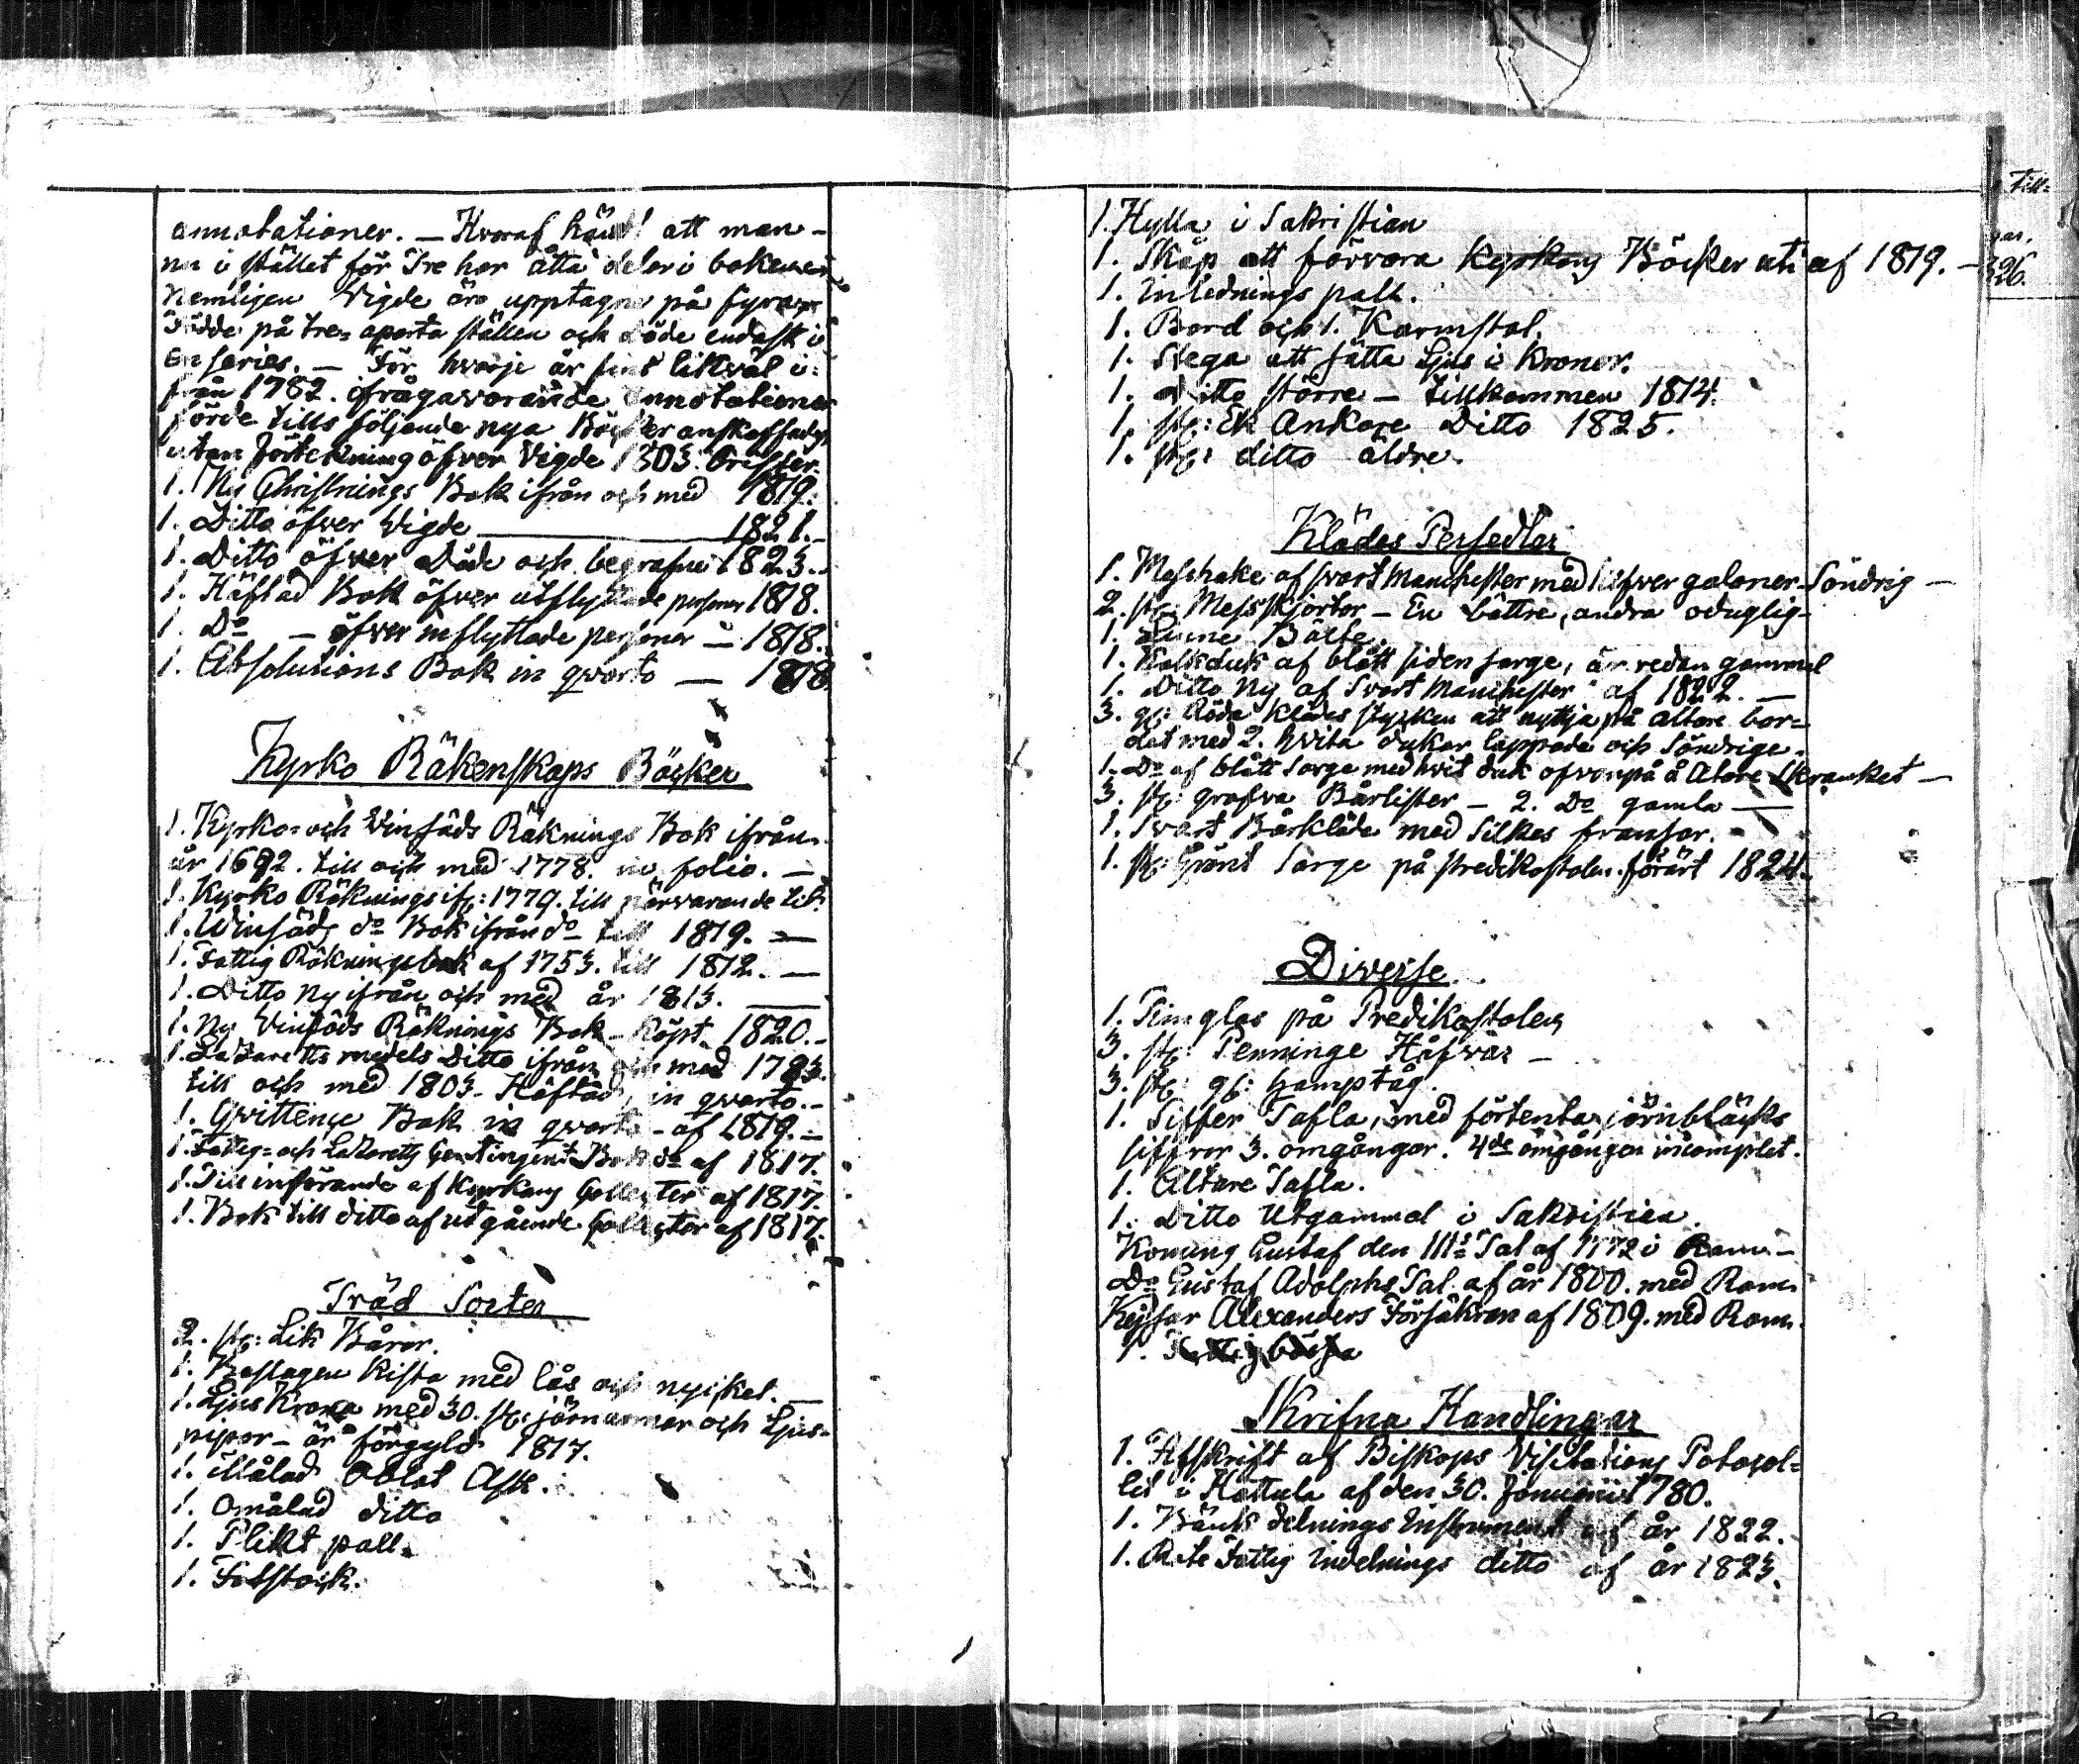 annotationer. — Hvaraf händt att man-
na i stället för Tre har åtta delar i boken
Nemligen Vigde äro upptagne på fyra
Födde på tre aparta ställen och döde endast i
en series. — För hvarje år fins likväl i-
från 1782. ifrågavarande annotationer
förde tills följande nya Böcker anskaffades
utom förtekning öfver Vigde 1803. brister.
1. Ny Christnings Bok ifrån och med 1819.
1. Ditto öfver Vigde — 1821.
1. Ditto öfver Döde och begrafne 1823.
1. Häftad Bok öfver utflyttade personer 1818.
1. Do — öfver inflyttade personer — 1818.
1. Absolutions Bok in qvarto — 1818
Kyrko Räkenskaps Böcker
1. Kyrko- och Vinsäds Räknings Bok ifrån
år 1692. till och med 1778. in folio. —
1. Kyrko Räknings if: 1779. till närvarande tid.
1. Winsäds do Bok ifrån do till 1819. —
1. Fattig Räkningsbok af 1753. till 1812. —
1. Ditto Ny ifrån och med år 1813. —
1. Ny Vinsäds Räknings Bok Köpt 1820. —
1. Lazaretts medels Ditto ifrån och med 1783.
till och med 1803. Häftad, in qvarto. —
1. Qvittence Bok in qvarto — af 1819. —
1. Fattig- och Lazaretts Contingent Bok do af 1817.
1. Till införande af Kyrkans Collecter af 1817.
1. Bok till ditto af utgående Collecter af 1817.
Träd Sorter
2. st: Lik Bårar.
1. Beslagen Kista med lås och nyckel. —
1. Ljus Krona med 30. st: järnarmar och Ljus-
pipor — är förgyld 1817.
1. Målad Oblat Ask.
1. Omålad ditto
1. Plikt pall.
1. Fotstock.
1. Hylla i Sakristian
1. Skåp att förvara Kyrkans Böcker uti af 1819. —
1. Inlednings pall.
1. Bord och 1. Karmstol.
1. Stega att sätta Ljus i Kronor.
1. Ditto större — tillkommen 1814.
1. st: Ek Ankare Ditto 1825.
1. st: ditto äldre.
Klädes Persedlar
1. Messhake af svart Manchester med silfver galoner. Söndrig —
2. st: Messkjortor — En bättre, andra oduglig —
1. Linne Bälte.
1. Kalkduk af blått siden sarge, är redan gammal
1. Ditto Ny af Svart Manchester af 1822. —
3. gl: Röda Klädes stycken att nyttja på Altare bor-
det med 2. hvita dukar lappade och söndrige.
1. Do af blått Sarge med hvit duk ofvanpå å Altare Skranket —
3. st: grofva Bårlister — 2. Do gamla —
1. Svart Bårkläde med Silkes fransar. —
1. st: Grönt Sarge på Predikostolen förärt 1824.
Diverse.
1. Timglas på Predikostolen
3. st: Penninge Håfvar —
3. st: gl: hamptåg.
1. Siffer Tafla, med förtenta järnbläcks
siffror 3. omgångar. 4de omgången incomplet.
1. Altare Tafla.
1. Ditto Utgammal i Sakristian.
Konung Gustaf den IIIs Tal af 1772 i Ram. —
Do Gustaf Adolphs Tal af år 1800. med Ram.
Kejsar Alexanders Försäkran af 1809. med Ram.
1. Fattigbössa
Skrifna Handlingar
1. Afskrift af Biskops Visitations Potocol-
let i Hattula af den 30. Januarii 1780.
1. Bänk delnings Instrument af år 1822.
1. Rote Fattig Indelnings ditto af år 1823.
Till-
26.